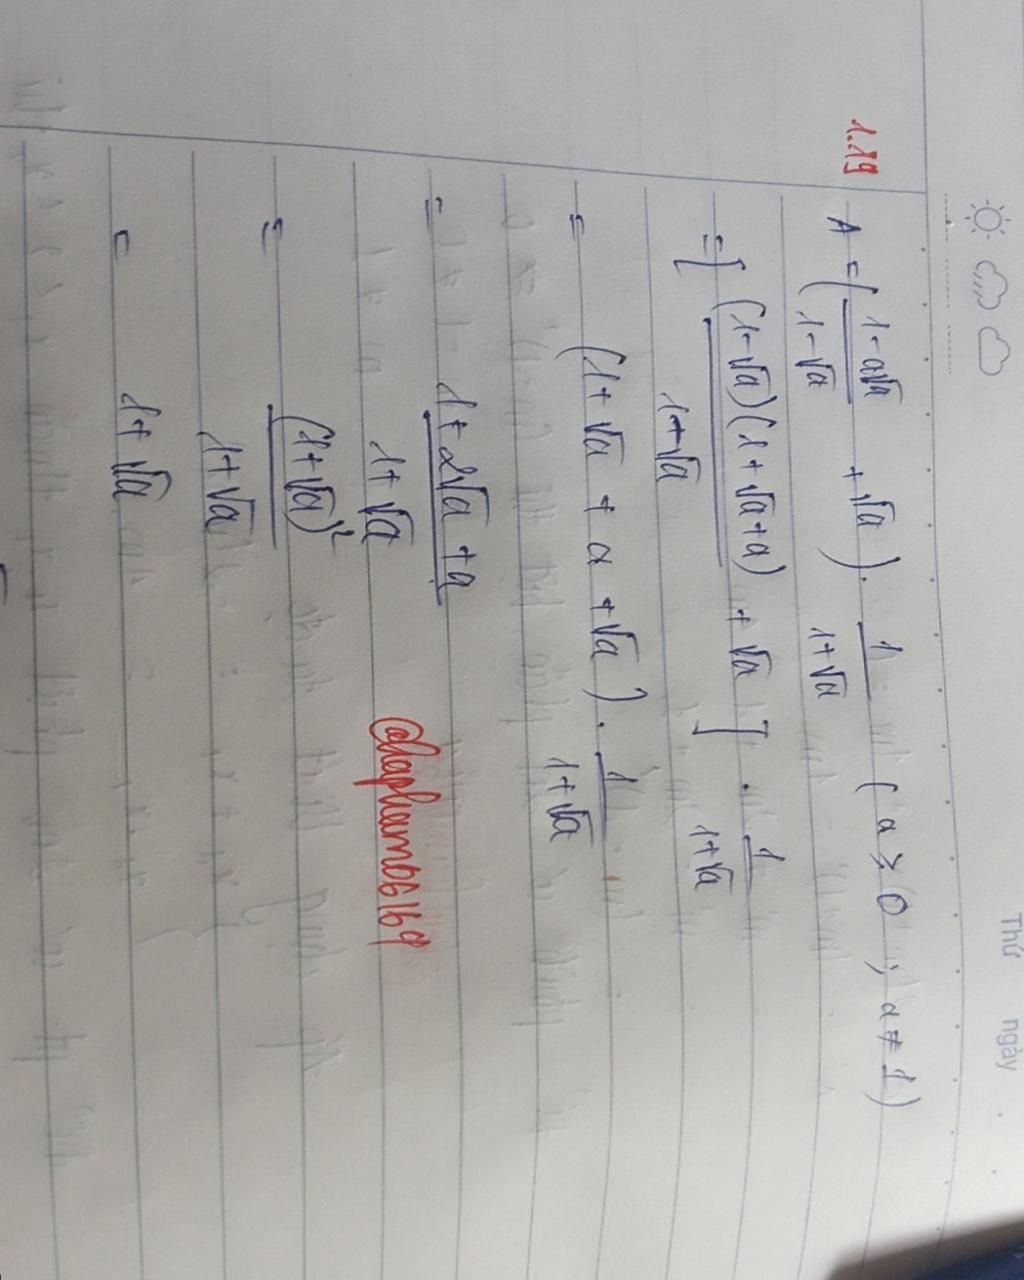 Thứ ngày
1.19 A = ( (1-a√a)/(1-√a) + √a ) . 1/(1+√a) ( a ≥ 0 ; a ≠ 1 )
= [ (1-√a)(1+√a+a)/(1+√a) + √a ] . 1/(1+√a)
= (1 + √a + a + √a) . 1/(1+√a)
= (1+2√a+a)/(1+√a)
@hapham06169
= (1+√a)²/(1+√a)
= 1+√a